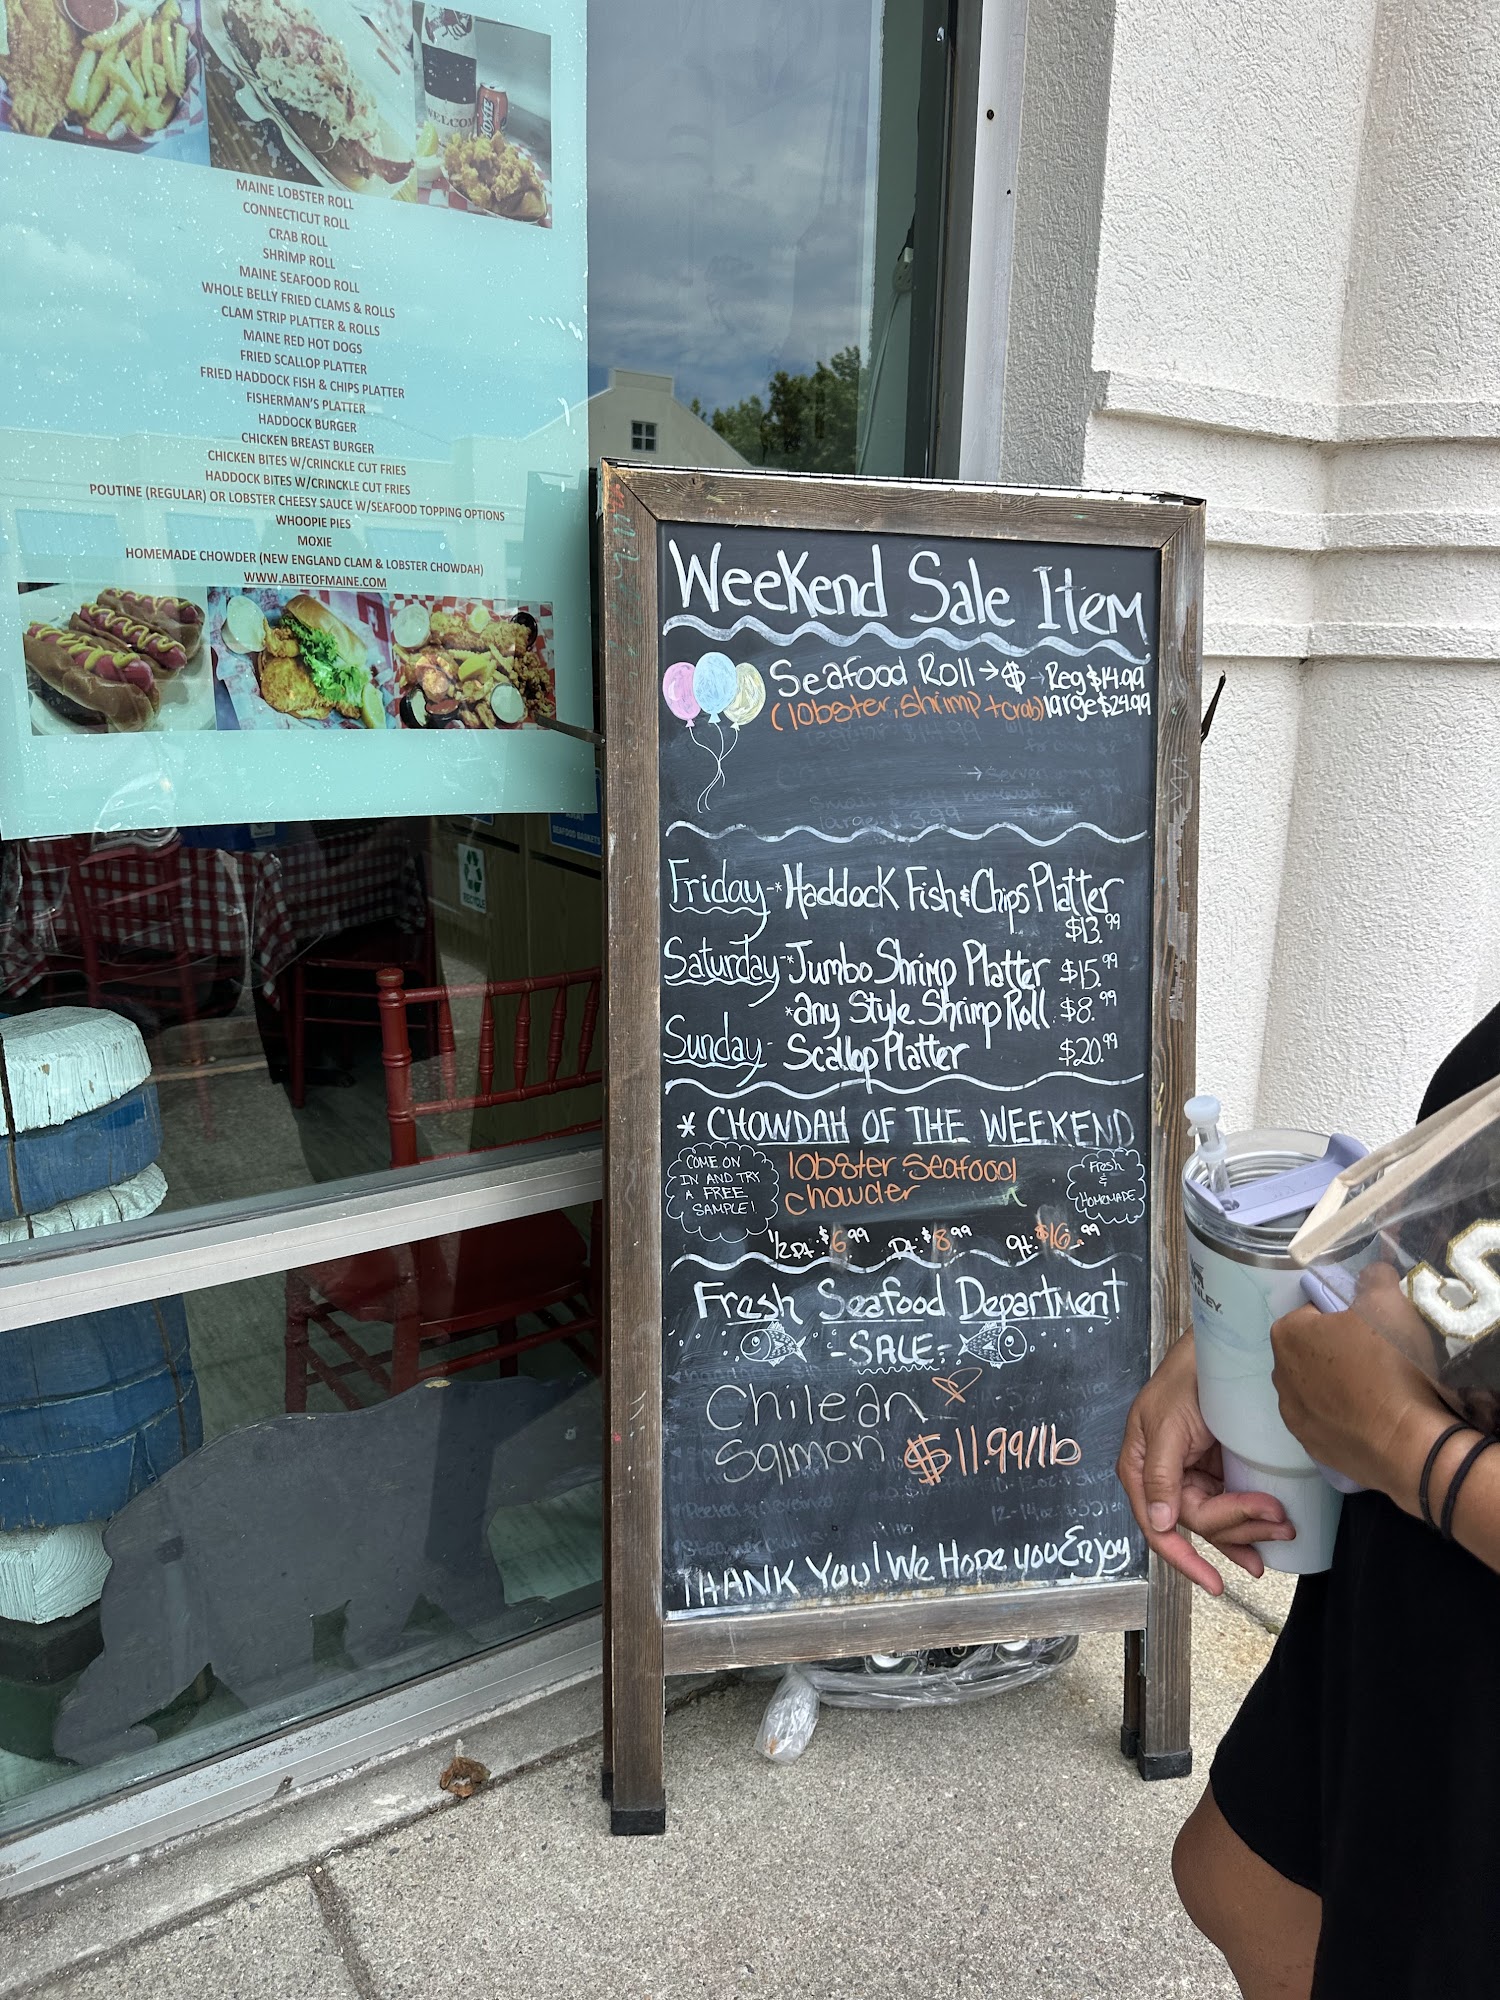 WELCOME
MOXIE
MAINE LOBSTER ROLL
CONNECTICUT ROLL
CRAB ROLL
SHRIMP ROLL
MAINE SEAFOOD ROLL
WHOLE BELLY FRIED CLAMS & ROLLS
CLAM STRIP PLATTER & ROLLS
MAINE RED HOT DOGS
FRIED SCALLOP PLATTER
FRIED HADDOCK FISH & CHIPS PLATTER
FISHERMAN'S PLATTER
HADDOCK BURGER
CHICKEN BREAST BURGER
CHICKEN BITES W/CRINCKLE CUT FRIES
HADDOCK BITES W/CRINCKLE CUT FRIES
POUTINE (REGULAR) OR LOBSTER CHEESY SAUCE W/SEAFOOD TOPPING OPTIONS
WHOOPIE PIES
MOXIE
HOMEMADE CHOWDER (NEW ENGLAND CLAM & LOBSTER CHOWDAH)
WWW.ABITEOFMAINE.COM
SEAFOOD BASKETS
RECYCLE
Weekend Sale Item
Seafood Roll → $ → Reg $14.99
(lobster, shrimp + crab) large $24.99
Friday - * Haddock Fish & Chips Platter
$13.99
Saturday - * Jumbo Shrimp Platter $15.99
* any Style Shrimp Roll $8.99
Sunday - Scallop Platter $20.99
* CHOWDAH OF THE WEEKEND
COME ON
IN AND TRY
A FREE
SAMPLE!
lobster seafood
chowder
Fresh
&
HOMEMADE
1/2 Pt: $6.99 Pt: $8.99 Qt: $16.99
Fresh Seafood Department
- SALE -
Chilean
Salmon $11.99/lb
THANK YOU! We Hope you Enjoy
NLEY
S